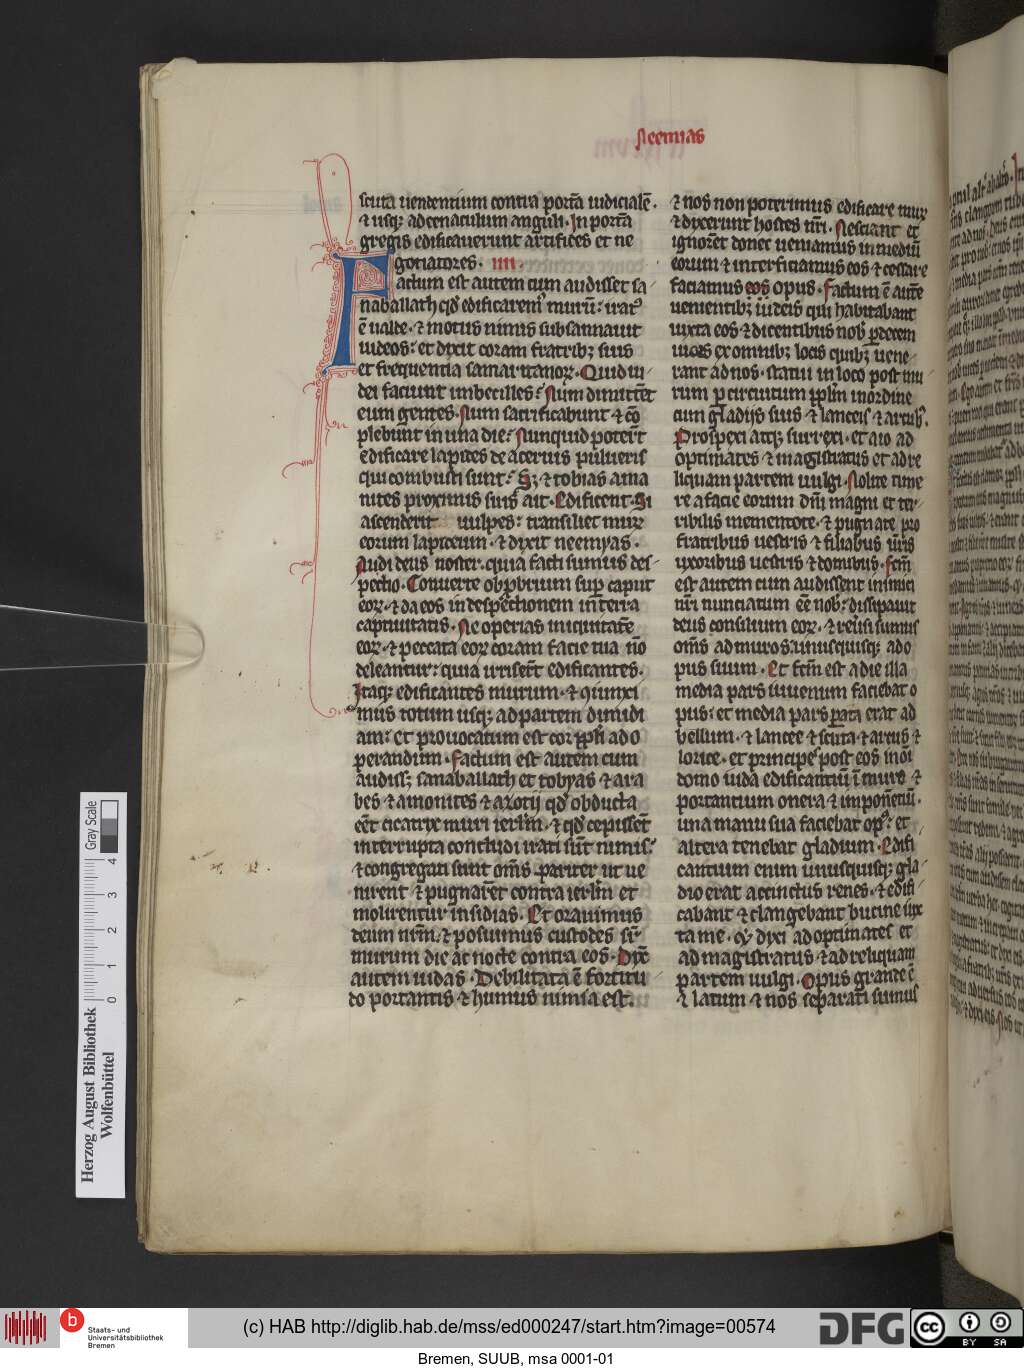 Neemias
scuta uendentium contra portā iudicialē.
⁊ usq; ad cenaculum anguli. In porta
gregis edificauerunt artifices et ne
gotiatores. IIII.
Factum est autem cum audisset sa
naballath qd̄ edificarem' murū: irat'
ē ualde. ⁊ motus nimis subsannauit
iudeos: et dixit coram fratribz suis
et frequentia samaritanoꝝ. Quid iu
dei faciunt imbecilles: Num dimittēt
eum gentes. Num sacrificabunt ⁊ cō
plebunt in una die: Nunquid poterūt
edificare lapides de aceruis pulueris
qui combusti sunt: Sꝫ ⁊ tobias ama
nites proximus suis ait. Edificent. Si
ascenderit uulpes: transiliet murū
eorum lapideum. ⁊ dixit neemyas.
Audi deus noster. quia facti sumus des
pectio. Conuerte obprobrium sup caput
eoꝝ. ⁊ da eos in despectionem in terra
captiuitatis. Ne operias iniquitatē
eoꝝ. ⁊ peccata eoꝝ coram facie tua nō
deleantur: quia irriserūt edificantes.
Itaq; edificantes murum. ⁊ qiunxi
mus totum usq; ad partem dimidi
am: et prouocatum est cor ppli ad o
perandum. Factum est autem cum
audissꝫ sanaballath et tobyas ⁊ ara
bes ⁊ amonites ⁊ azotij qd̄ obducta
eēt cicatrix muri ierlm̄. ⁊ qd̄ cepissēt
interrupta concludi irati sūt nimis:
⁊ congregati sunt om̄s pariter ut ue
nirent ⁊ pugnarēt contra ierlm̄ et
molirentur insidias. Et orauimus
deum nr̄m. ⁊ posuimus custodes sup
murum die ac nocte contra eos. Dix̄
autem iudas. Debilitata ē fortitu
do portantis ⁊ humus nimia est.
⁊ nos non poterimus edificare murū
⁊ dixerunt hostes nr̄i. Nesciant et
ignorēt donec ueniamus in mediū
eorum ⁊ interficiamus eos ⁊ cessare
faciamus eos opus. Factum ē autē
uenientibꝫ iudeis qui habitabant
iuxta eos ⁊ dicentibus nob̄ p decem
uices ex omnibꝫ locis quibꝫ uene
rant ad nos. statui in loco post mu
rum p circuitum pplm̄ in ordine
cum gladijs suis ⁊ lanceis ⁊ arcubꝫ.
Prospexi atq; surrexi. et aio ad
optimates ⁊ magistratus et ad re
liquam partem uulgi. Nolite time
re a facie eorum dn̄i magni et ter
ribilis mementote. ⁊ pugnate pro
fratribus uestris ⁊ filiabus ur̄is
uxoribus uestris ⁊ domibus. Fcm̄
est autem cum audissent inimici
nr̄i nunciatum eē nob̄: dissipauit
deus consilium eoꝝ. ⁊ reuersi sumus
om̄s ad muros: unusquisq; ad o
pus suum. Et fcm̄ est a die illa
media pars iuuenum faciebat o
pus: et media pars parata erat ad
bellum. ⁊ lancee ⁊ scuta ⁊ arcus ⁊
lorice. et principes post eos in om̄i
domo iuda edificantiū ī muro ⁊
portantium onera ⁊ imponētiū.
una manu sua faciebat op': et
altera tenebat gladium. Edifi
cantium enim unusquisq; gla
dio erat accinctus renes. ⁊ edifi
cabant ⁊ clangebant bucine iux
ta me. ⁊ dixi ad optimates et
ad magistratus ⁊ ad reliquam
partem uulgi. Opus grande ē
⁊ latum ⁊ nos separati sumus
Herzog August Bibliothek
Wolfenbüttel
0 1 2 3 4
Gray Scale
b
Staats- und
Universitätsbibliothek
Bremen
(c) HAB http://diglib.hab.de/mss/ed000247/start.htm?image=00574
DFG
cc BY SA
Bremen, SUUB, msa 0001-01